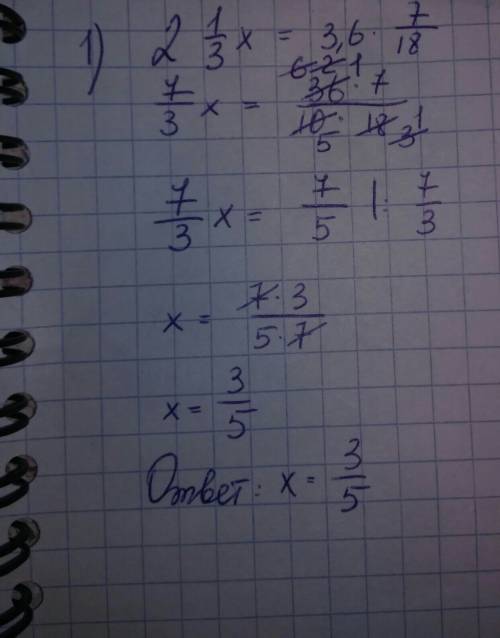 1) 2 1/3 x = 3,6 · 7/18
6 2 1
7/3 x = 36 · 7 / 10 · 18 3 1
5
7/3 x = 7/5 |: 7/3
x = 7 · 3 / 5 · 7
x = 3/5
Ответ: x = 3/5